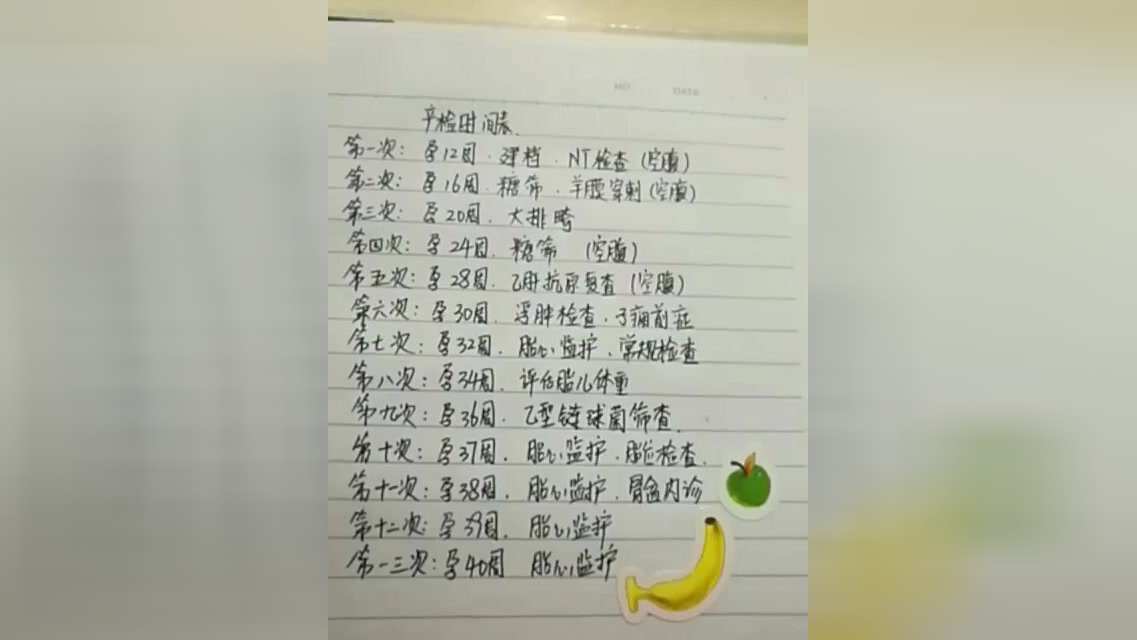 NO.
DATE
产检时间表.
第一次：孕12周．建档．NT检查（空腹）
第二次：孕16周．糖筛．羊膜穿刺（空腹）
第三次：孕20周．大排畸
第四次：孕24周．糖筛（空腹）
第五次：孕28周．乙肝抗原复查（空腹）
第六次：孕30周．浮肿检查．子痫前症
第七次：孕32周．胎心监护．常规检查
第八次：孕34周．评估胎儿体重
第九次：孕36周．乙型链球菌筛查．
第十次：孕37周．胎心监护．胎位检查．
第十一次：孕38周．胎心监护．骨盆内诊
第十二次：孕39周．胎心监护
第一三次：孕40周 胎心监护